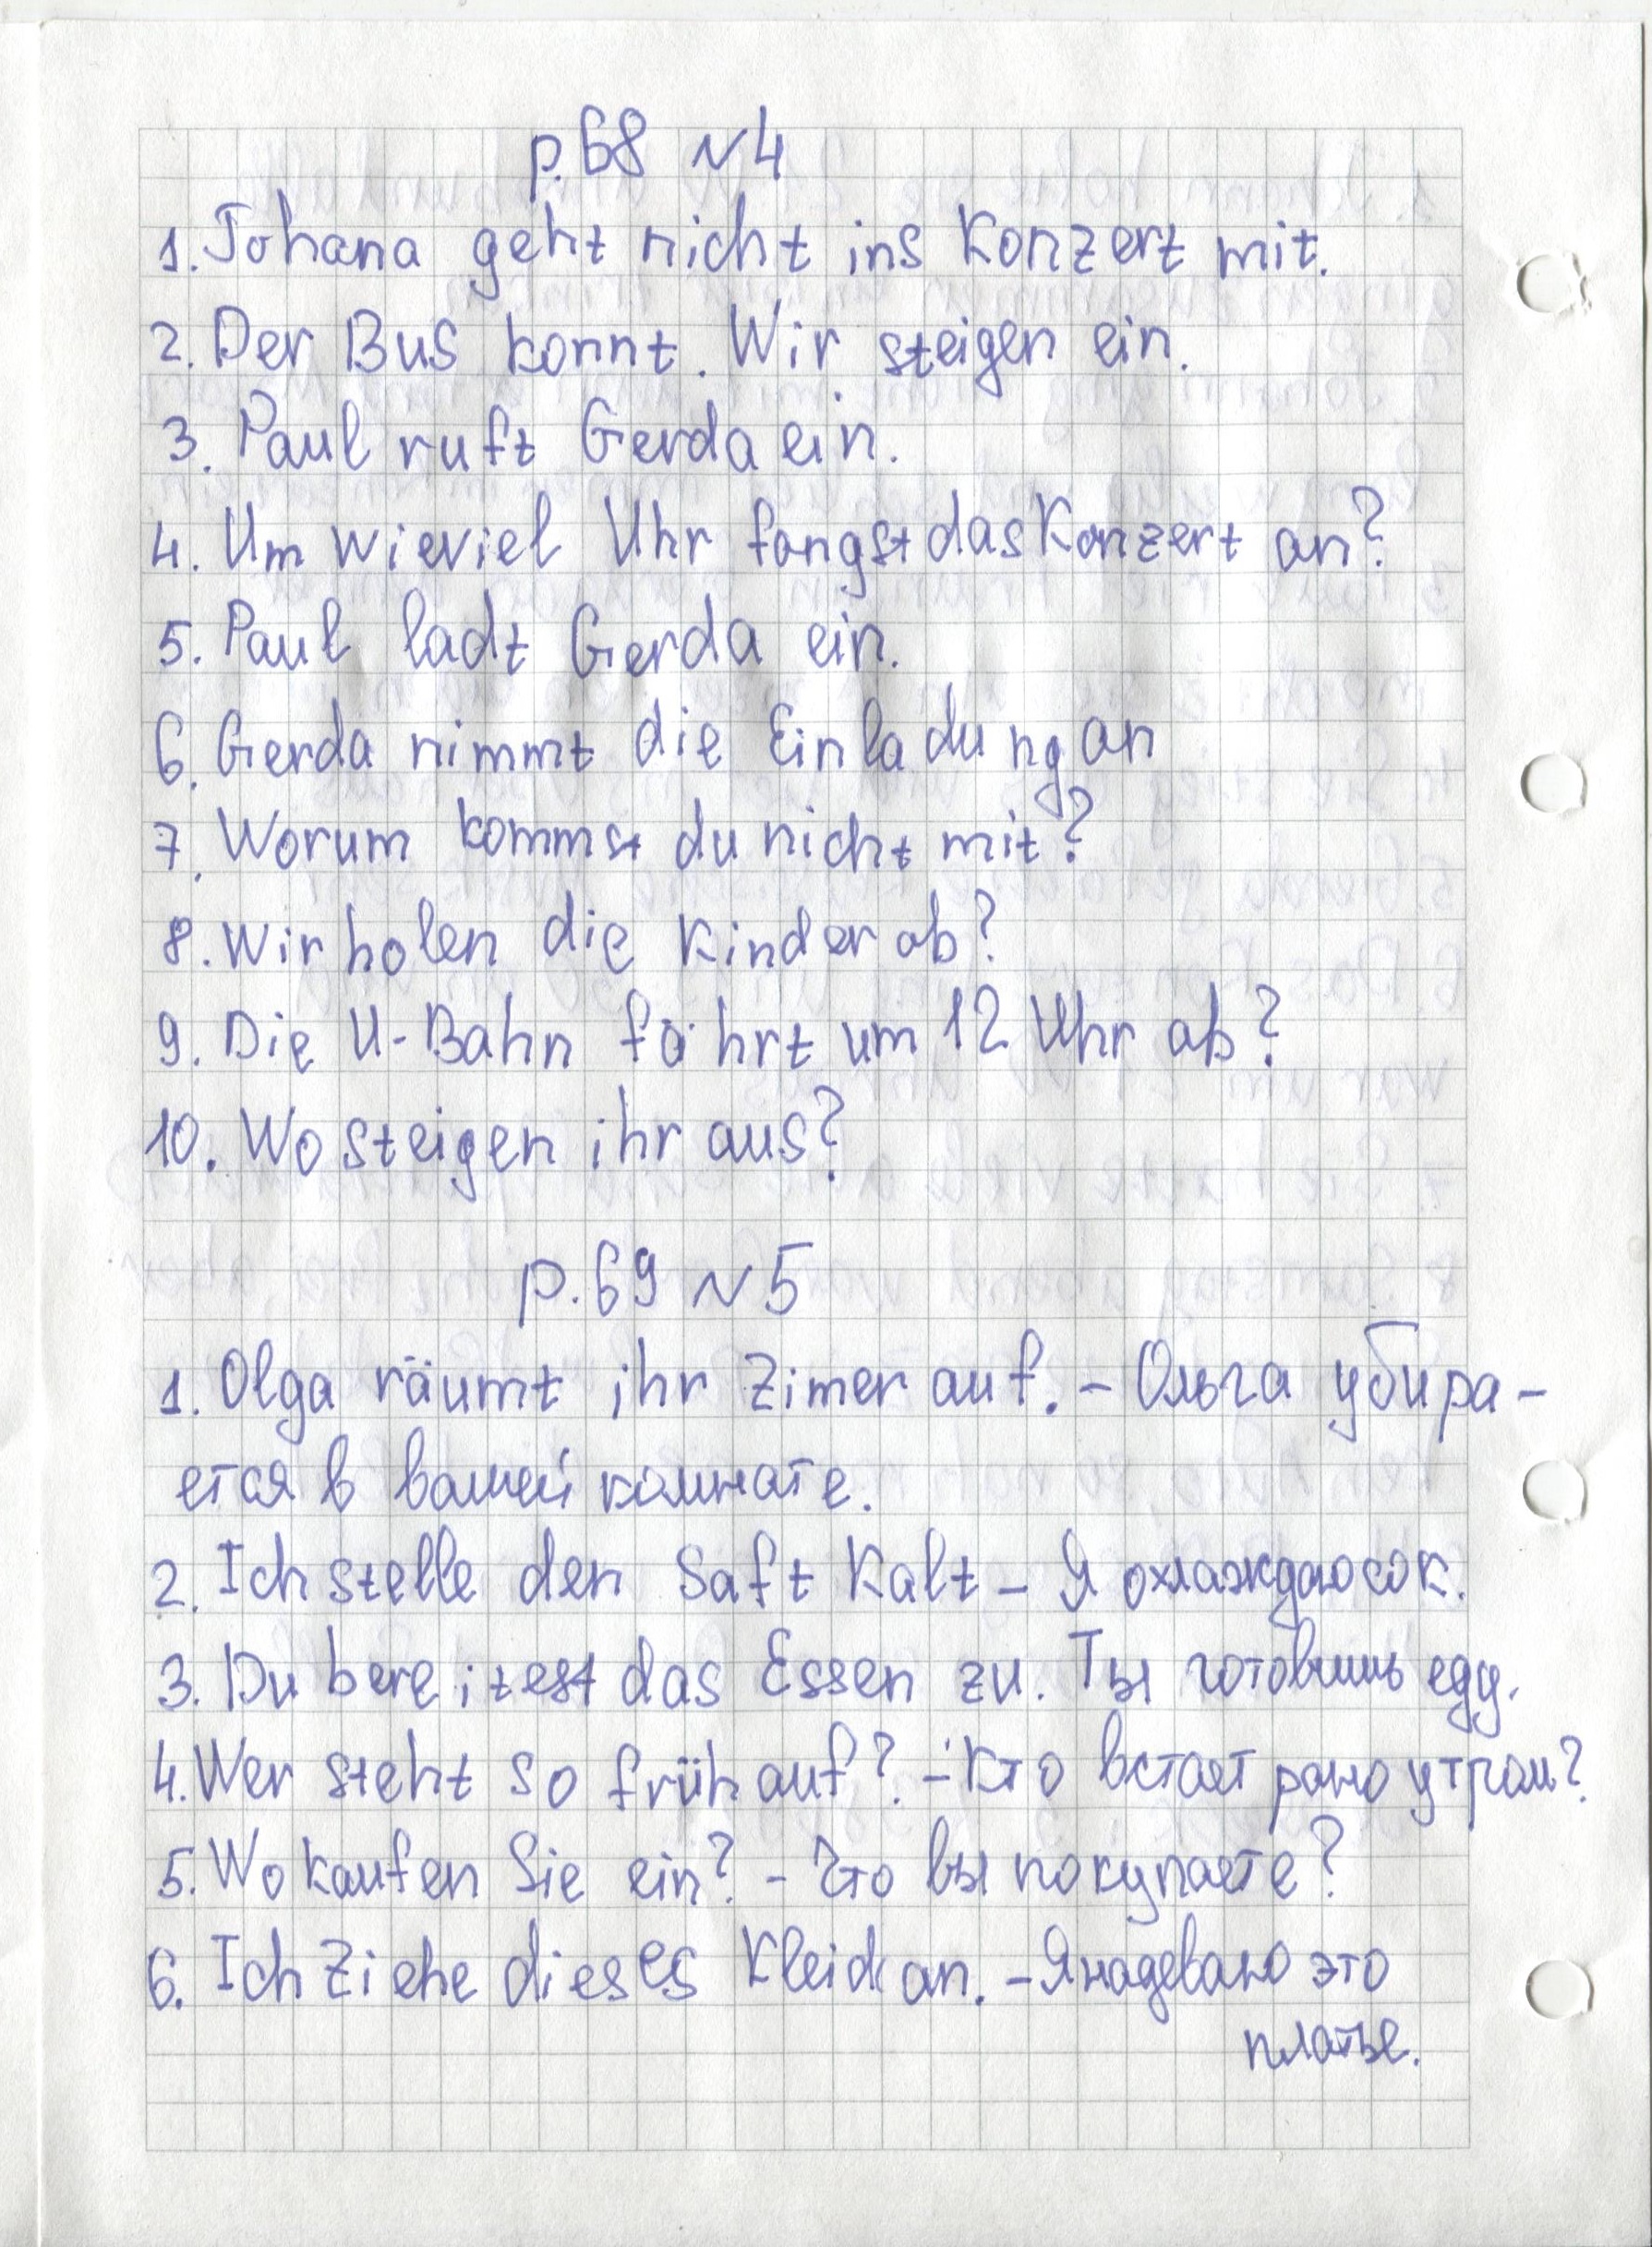 p.68 N4
1. Johana geht nicht ins Konzert mit.
2. Der Bus konnt. Wir steigen ein.
3. Paul ruft Gerda ein.
4. Um wieviel Uhr fongst das Konzert an?
5. Paul ladt Gerda ein.
6. Gerda nimmt die Einladung an
7. Worum kommst du nicht mit?
8. Wir holen die Kinder ab?
9. Die U-Bahn fährt um 12 Uhr ab?
10. Wo steigen ihr aus?
p.69 N5
1. Olga räumt ihr Zimer auf. - Ольга убира-
ется в вашей комнате.
2. Ich stelle den Saft Kalt - Я охлаждаю сок.
3. Du bereitest das Essen zu. Ты готовишь еду.
4. Wer steht so früh auf? - Кто встает рано утром?
5. Wo kaufen Sie ein? - Что вы покупаете?
6. Ich Ziehe dieses Kleid an. - Я надеваю это
платье.